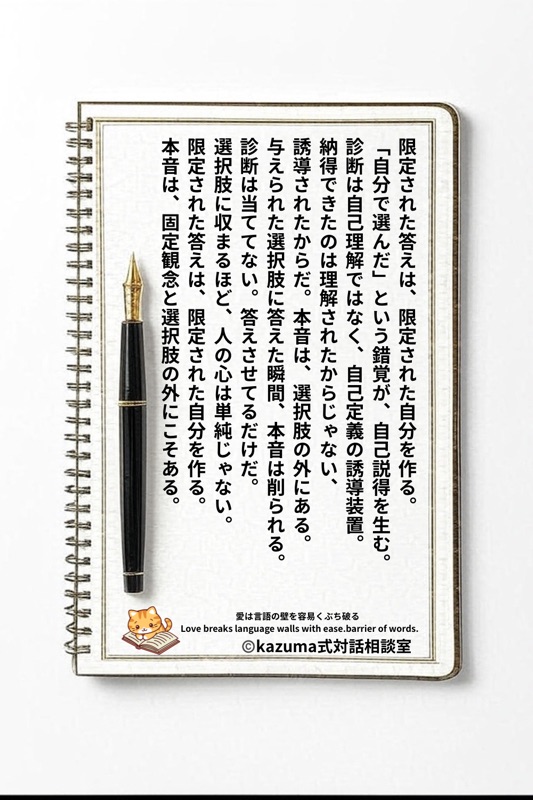 限定された答えは、限定された自分を作る。
「自分で選んだ」という錯覚が、自己説得を生む。
診断は自己理解ではなく、自己定義の誘導装置。
納得できたのは理解されたからじゃない、
誘導されたからだ。本音は、選択肢の外にある。
与えられた選択肢に答えた瞬間、本音は削られる。
診断は当ててない。答えさせてるだけだ。
選択肢に収まるほど、人の心は単純じゃない。
限定された答えは、限定された自分を作る。
本音は、固定観念と選択肢の外にこそある。
愛は言語の壁を容易くぶち破る
Love breaks language walls with ease.barrier of words.
©kazuma式対話相談室